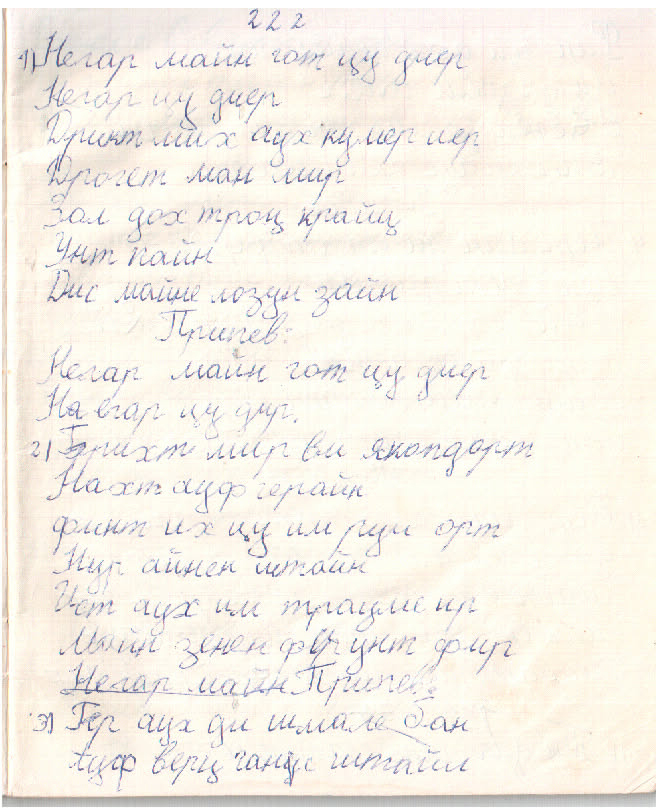 222
1) Негар майн гот цу диер
Негар цу диер
Дринкт мих аух кумер иер
Дрогет ман мир
Зал дох троц крайц
Унт пайн
Дис майне лозун зайн
Припев:
Негар майн гот цу диер
На егар цу дир.
2) Брихт мир ви якопдорт
Нахт ауф герайн
финт их цу им рум орт
Нур айнен штайн
Ист аух им трауме ир
Майн зенен фуг унт фир
Негар майн Припев:
3) Гер аух ди шмале бан
Ауф верц ганц штайл